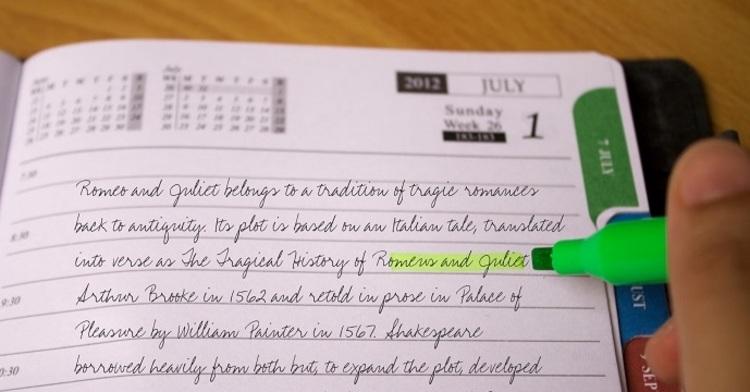 2012 JULY
July
Sunday
Week 26
183-183
1
7 JULY
7:30
Romeo and Juliet belongs to a tradition of tragic romances
8:30
back to antiquity. Its plot is based on an Italian tale, translated
into verse as The Tragical History of Romeus and Juliet
9:30
Arthur Brooke in 1562 and retold in prose in Palace of
Pleasure by William Painter in 1567. Shakespeare
borrowed heavily from both but, to expand the plot, developed
0:30
UST
SEP